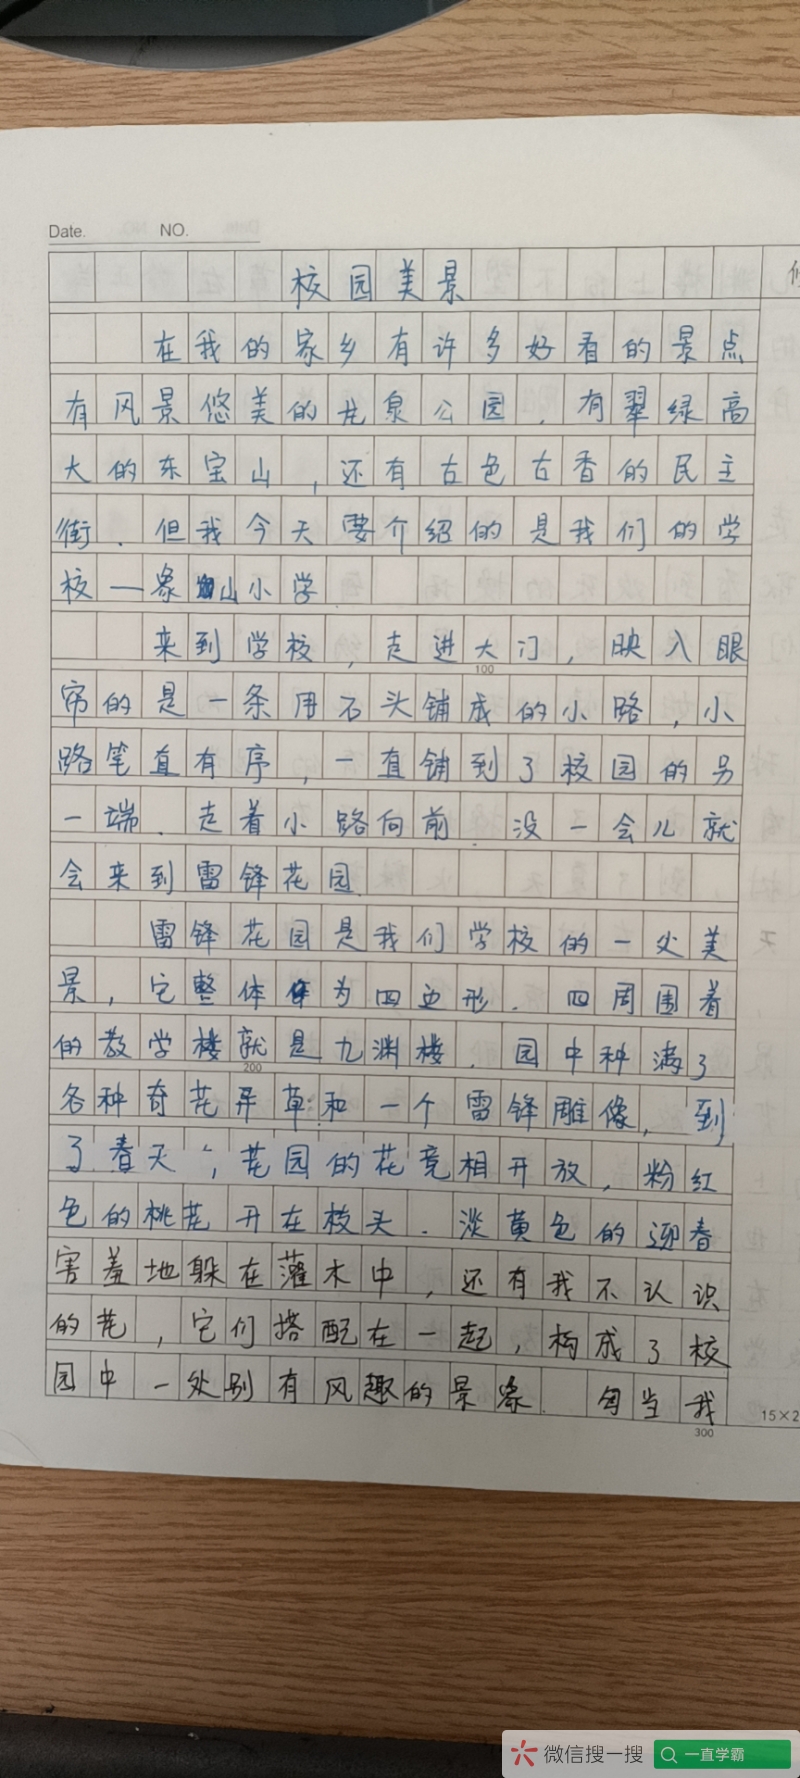 Date. NO.
校园美景
在我的家乡有许多好看的景点
有风景悠美的龙泉公园，有翠绿高
大的东宝山，还有古色古香的民主
街．但我今天要介绍的是我们的学
校一象山小学．
来到学校，走进大门，映入眼
100
帘的是一条用石头铺成的小路，小
路笔直有序，一直铺到了校园的另
一端．走着小路向前．没一会儿就
会来到雷锋花园．
雷锋花园是我们学校的一处美
景，它整体为四边形．四周围着
的教学楼就是九渊楼．园中种满了
200
各种奇花异草和一个雷锋雕像，到
了春天，花园的花竞相开放，粉红
色的桃花开在枝头．淡黄色的迎春
害羞地躲在灌木中，还有我不认识
的花，它们搭配在一起，构成了校
园中一处别有风趣的景象．每当我
300
15×2
微信搜一搜
一直学霸